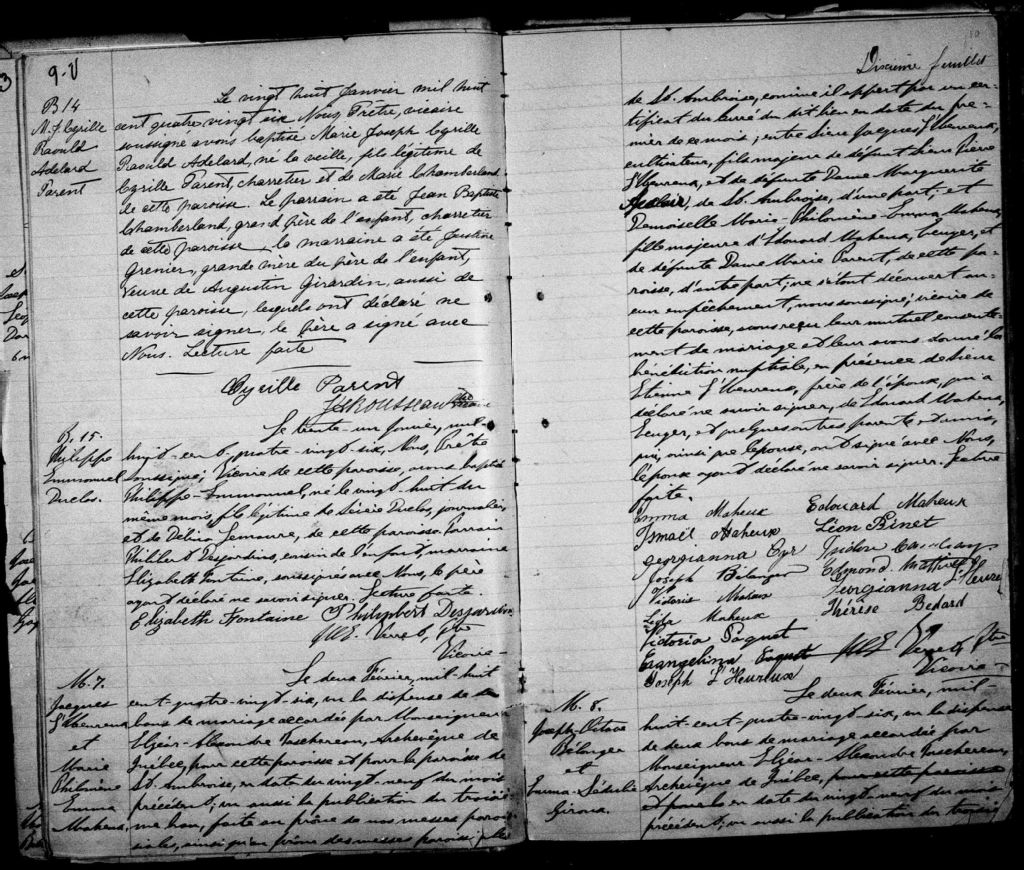 9-V
B 14
M. J. Cyrille
Raould
Adelard
Parent
Le vingt huit Janvier mil huit
cent quatre vingt six Nous, Prêtre, vicaire
soussigné avons baptisé Marie Joseph Cyrille
Raould Adelard, né la veille, fils légitime de
Cyrille Parent, charretier et de Marie Chamberland
de cette paroisse. Le parrain a été Jean Baptiste
Chamberland, grand père de l'enfant, charretier
de cette paroisse la marraine a été Justine
Grenier, grande mère du père de l'enfant,
Veuve de Augustin Girardin, aussi de
cette paroisse, lesquels ont déclaré ne
savoir signer, le père a signé avec
Nous. Lecture faite
Cyrille Parent
Rousseau Ptre
Vicaire
B. 15.
Philippe
Emmanuel
Duclos.
Le trente-un Janvier, mil-
huit-cent-quatre-vingt-six, Nous, Prêtre
soussigné, Vicaire de cette paroisse, avons baptisé
Philippe-Emmanuel, né le vingt huit du
même mois, fils légitime de Duclos, journalier
et de Délina Lemaire, de cette paroisse. Parrain
Philibert Desjardins, cousin de l'enfant, marraine
Elizabeth Fontaine, soussignés avec Nous, le père
ayant déclaré ne savoir signer. Lecture faite.
Elizabeth Fontaine Philimbert Desjardins
Verret, Ptre
Vicaire-
M. 7.
Jacques
L'Heureux
et
Marie
Philomène
Emma
Maheux,
Le deux Février, mil-huit
cent-quatre-vingt-six, vu la dispense de
bans de mariage accordée par Monseigneur
Elzéar-Alexandre Taschereau, Archevêque de
Québec, pour cette paroisse et pour la paroisse de
St. Ambroise, en date du vingt-neuf du mois
précédent; vu aussi la publication du troisiè
me ban, faite au prône de nos messes parois
siales, ainsi qu'au prône des messes paroissiales
Dixième feuillet
de St. Ambroise, comme il appert par un cer-
tificat du curé du dit lieu en date du pre-
mier de ce mois; entre Sieur Jacques L'Heureux,
cultivateur, fils majeur de défunt Sieur Pierre
L'Heureux, et de défunte Dame Marguerite
de St. Ambroise, d'une part; et
Demoiselle Marie-Philomène-Emma Maheux,
fille majeure d'Edouard Maheux, et
de défunte Dame Marie Parent, de cette pa-
roisse, d'autre part; ne s'étant découvert au-
cun empêchement, nous soussigné, vicaire de
cette paroisse, avons reçu leur mutuel consente-
ment de mariage et leur avons donné la
bénédiction nuptiale, en présence de Sieur
Etienne L'Heureux, frère de l'époux, qui a
déclaré ne savoir signer, de Edouard Maheux,
et quelques autres parents et amis,
qui, ainsi que l'épouse, ont signé avec Nous,
l'époux ayant déclaré ne savoir signer. Lecture
faite.
Emma Maheux Edouard Maheux
Ismaël Maheux Léon Binet
Georgianna Cyr Isidor
Joseph Bélanger Edmond
Victoria Maheux Georgianna L'Heureux
Maheux Thérèse Bedard
Victoria Paquet
Evangelina Paquet Verret, Ptre
Joseph L'Heureux Vicaire-
M. 8.
Joseph-Octave
Bélanger
et
Emma-Sédulie
Giroux.
Le deux Février, mil-
huit-cent-quatre-vingt-six, vu la dispense
de deux bans de mariage accordée par
Monseigneur Elzéar-Alexandre Taschereau,
Archevêque de Québec, pour cette paroisse
en date du vingt-neuf du mois
précédent; vu aussi la publication du troisiè